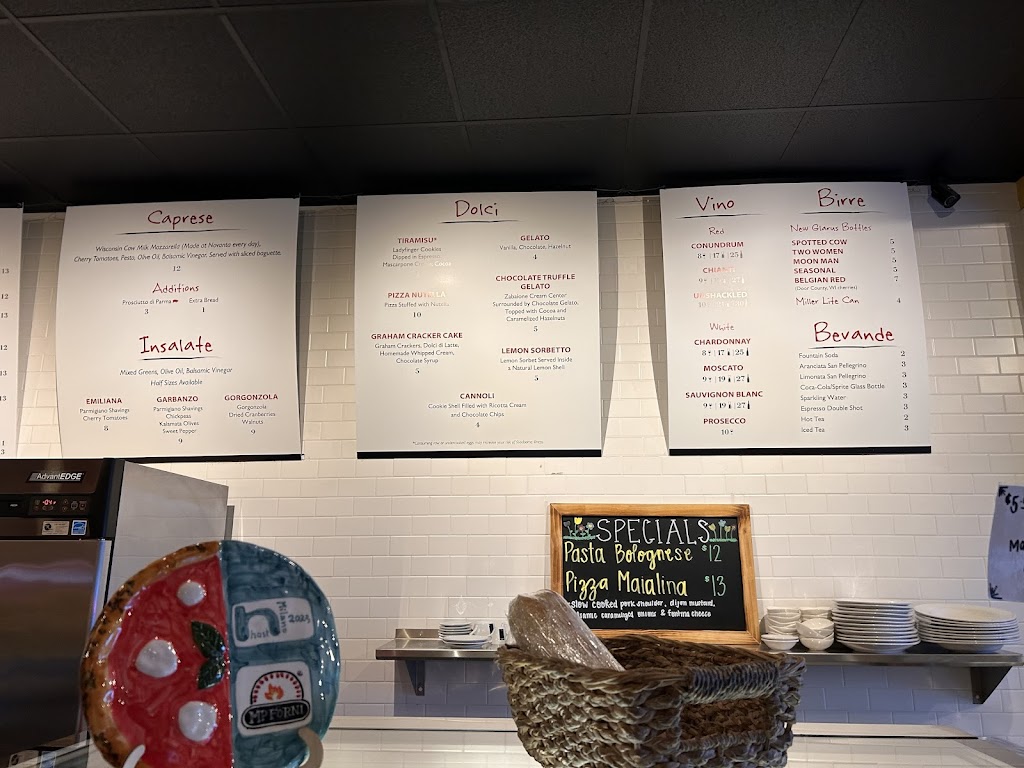 13
12
12
13
1
3
Caprese
Wisconsin Cow Milk Mozzarella (Made at Novanta every day),
Cherry Tomatoes, Pesto, Olive Oil, Balsamic Vinegar. Served with sliced baguette.
12
Additions
Prosciutto di Parma
3
Extra Bread
1
Insalate
Mixed Greens, Olive Oil, Balsamic Vinegar
Half Sizes Available
EMILIANA
Parmigiano Shavings
Cherry Tomatoes
8
GARBANZO
Parmigiano Shavings
Chickpeas
Kalamata Olives
Sweet Pepper
9
GORGONZOLA
Gorgonzola
Dried Cranberries
Walnuts
9
Dolci
TIRAMISU*
Ladyfinger Cookies
Dipped in Espresso
Mascarpone Cocoa
PIZZA NUTELLA
Pizza Stuffed with Nutella
10
GRAHAM CRACKER CAKE
Graham Crackers, Dolci di Latte,
Homemade Whipped Cream,
Chocolate Syrup
5
GELATO
Vanilla, Chocolate, Hazelnut
4
CHOCOLATE TRUFFLE
GELATO
Zabaione Cream Center
Surrounded by Chocolate Gelato,
Topped with Cocoa and
Caramelized Hazelnuts
5
LEMON SORBETTO
Lemon Sorbet Served Inside
a Natural Lemon Shell
5
CANNOLI
Cookie Shell Filled with Ricotta Cream
and Chocolate Chips
4
Vino
Red
CONUNDRUM
8 | 17 | 25
CHIANTI
9
UNSHACKLED
White
CHARDONNAY
8 | 17 | 25
MOSCATO
9 | 19 | 27
SAUVIGNON BLANC
9 | 19 | 27
PROSECCO
10
Birre
New Glarus Bottles
SPOTTED COW 5
TWO WOMEN 5
MOON MAN 5
SEASONAL 5
BELGIAN RED 7
(Door County, WI cherries)
Miller Lite Can 4
Bevande
Fountain Soda 2
Aranciata San Pellegrino 3
Limonata San Pellegrino 3
Coca-Cola/Sprite Glass Bottle 3
Sparkling Water 3
Espresso Double Shot 3
Hot Tea 2
Iced Tea 3
AdvantEDGE
SPECIALS
Pasta Bolognese $12
Pizza Maialina $13
slow cooked pork shoulder, dijon mustard,
caramelized onions & fontina cheese
$5
Ma
host
Milano
2023
MP FORNI